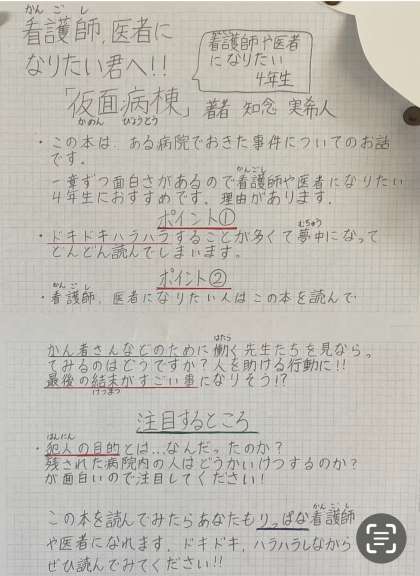 かんごし
看護師、医者に
なりたい君へ!!
看護師や医者
になりたい
4年生
「仮面病棟」 著者 知念 実希人
かめん びょうとう
・この本は、ある病院でおきた事件についてのお話
です。
一章ずつ面白さがあるので看護師や医者になりたい
4年生におすすめです。理由があります。
ポイント①
・ドキドキハラハラすることが多くて夢中になって
どんどん読んでしまいます。
ポイント②
・看護師、医者になりたい人はこの本を読んで
かん者さんなどのために働く先生たちを見ならっ
てみるのはどうですか?人を助ける行動に!!
最後の結末がすごい事になりそう!?
けつまつ
注目するところ
・犯人の目的とは…なんだったのか?
残された病院内の人はどうかいけつするのか?
が面白いので注目してください!
この本を読んでみたらあなたもりっぱな看護師
や医者になれます。ドキドキ、ハラハラしながら
ぜひ読んでみてください!!